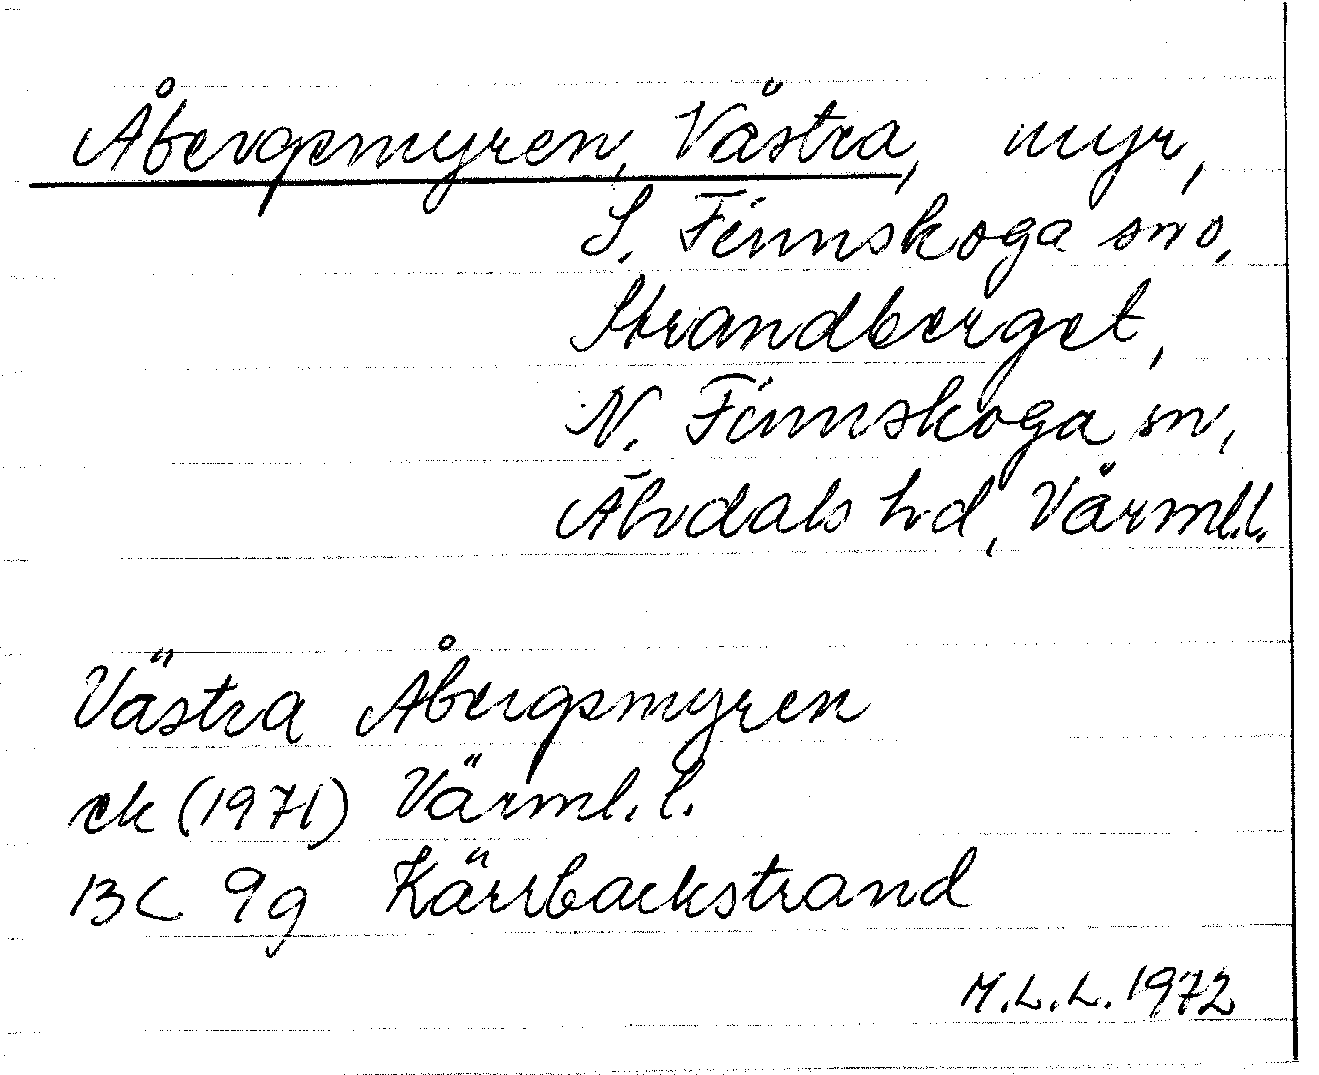 Åbergsmyren, Västra, myr,
S. Finnskoga sno,
Strandberget,
N. Finnskoga sn,
Älvdals hd, Värml.l.
Västra Åbergsmyren
ek (1971) Värml. l.
13C 9g Kärrbackstrand
M.L.L. 1972